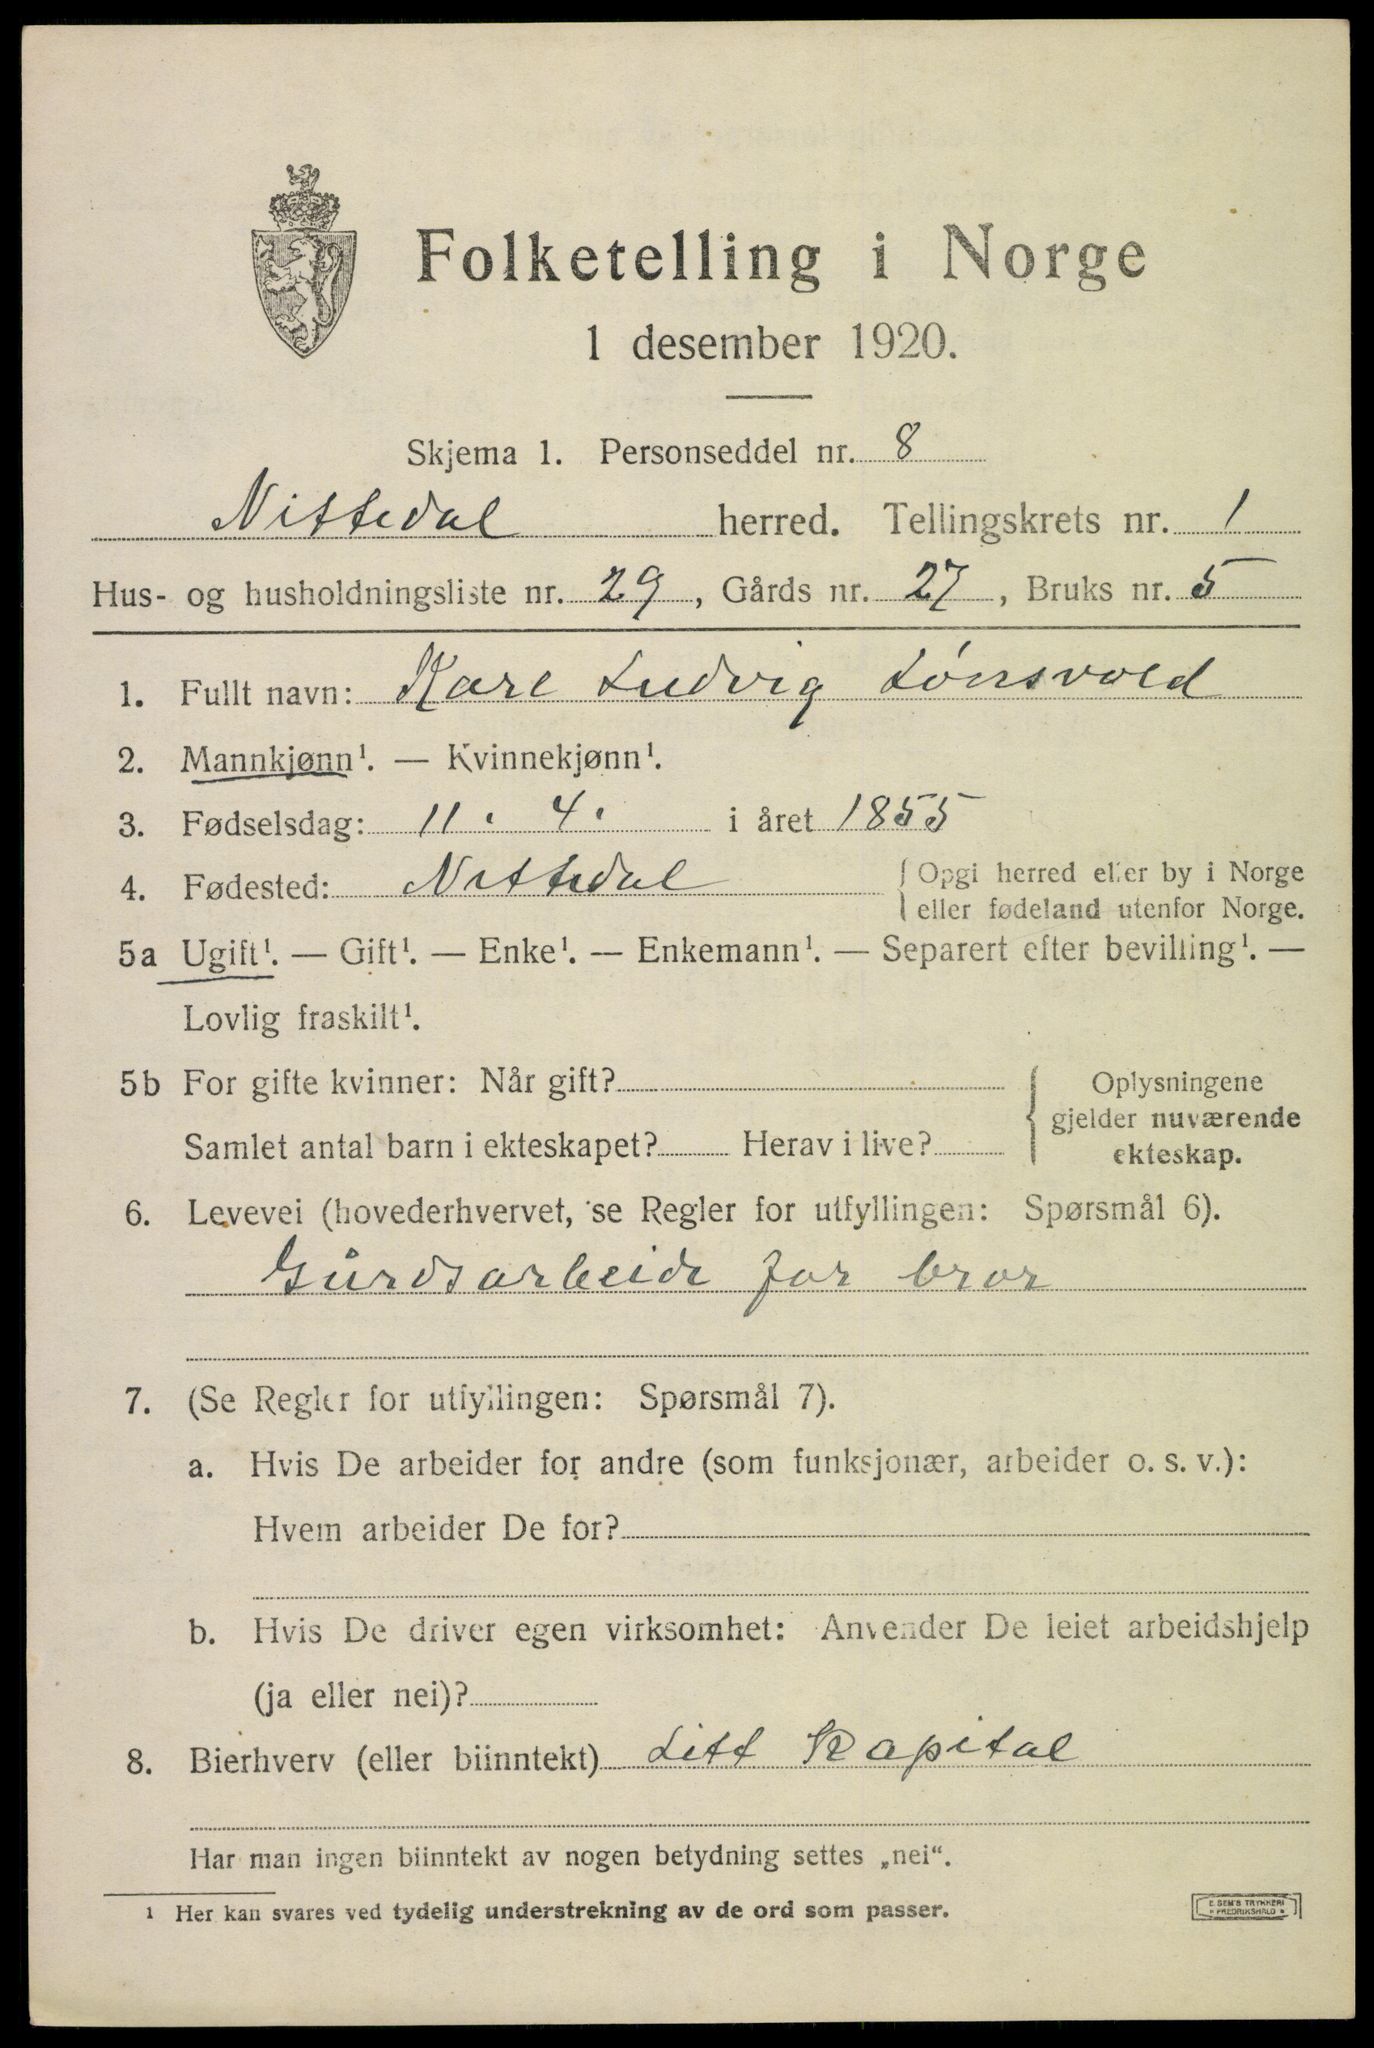 Folketelling i Norge
1 desember 1920.
Skjema 1. Personseddel nr. 8
Nittedal herred. Tellingskrets nr. 1
Hus- og husholdningsliste nr. 29, Gårds nr. 27, Bruks nr. 5
1. Fullt navn: Karl Ludvig Lønsvold
2. Mannkjønn¹. — Kvinnekjønn¹.
3. Fødselsdag: 11. 4. i året 1855
4. Fødested: Nittedal { Opgi herred eller by i Norge
eller fødeland utenfor Norge.
5a Ugift¹. — Gift¹. — Enke¹. — Enkemann¹. — Separert efter bevilling¹. —
Lovlig fraskilt¹.
5b For gifte kvinner: Når gift? { Oplysningene
gjelder nuværende
Samlet antal barn i ekteskapet? Herav i live? ekteskap.
6. Levevei (hovederhvervet, se Regler for utfyllingen: Spørsmål 6).
Gårdsarbeide for bror
7. (Se Regler for utfyllingen: Spørsmål 7).
a. Hvis De arbeider for andre (som funksjonær, arbeider o. s. v.):
Hvem arbeider De for?
b. Hvis De driver egen virksomhet: Anvender De leiet arbeidshjelp
(ja eller nei)?
8. Bierhverv (eller biinntekt) Litt Kapital
Har man ingen biinntekt av nogen betydning settes „nei“.
¹ Her kan svares ved tydelig understrekning av de ord som passer.
E. SEM'S TRYKKERI
FREDRIKSHALD